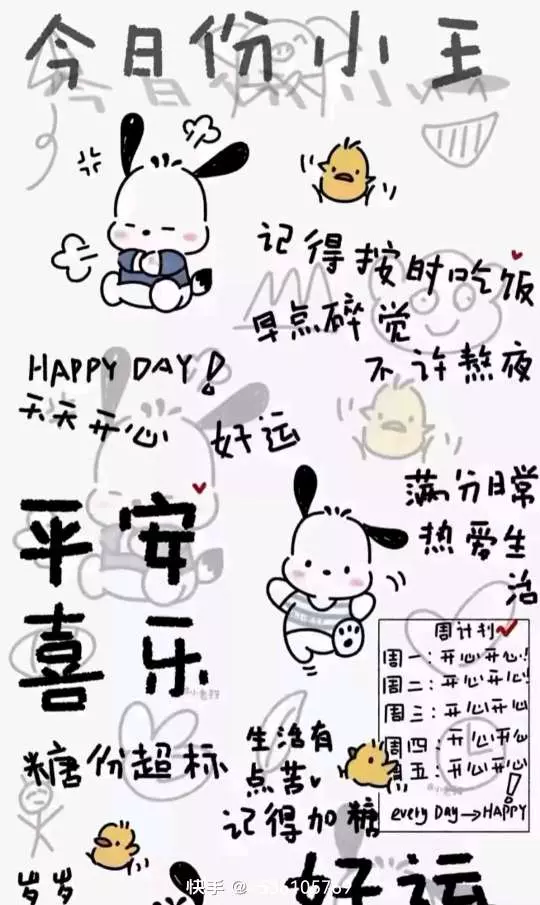 今日份小王
记得按时吃饭
早点碎觉
不许熬夜
HAPPY DAY!
天天开心 好运
满分日常
热爱生
活
平安
喜乐
周计划
周一:开心开心!
周二:开心开心!
周三:开心开心
周四:开心开心
周五:开心开心!
every DAY→HAPPY
糖份超标
生活有
点苦
记得加糖
岁岁
好运
快手